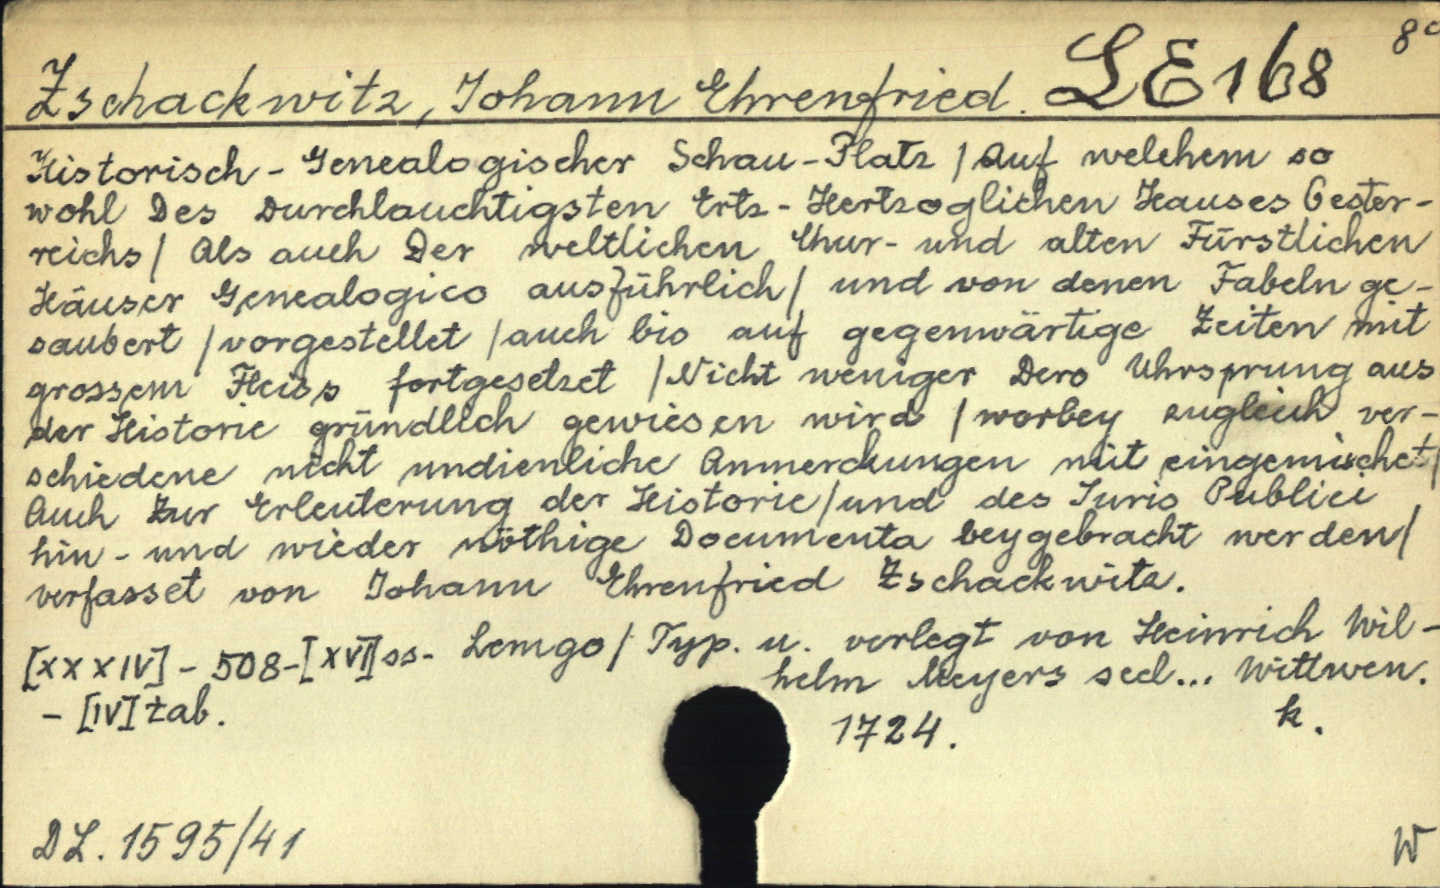 Zschackwitz, Johann Ehrenfried. LE 168 8°
Historisch-Genealogischer Schau-Platz / Auf welchem so
wohl Des Durchlauchtigsten Ertz-Hertzoglichen Hauses Oester-
reichs / Als auch Der weltlichen Chur- und alten Fürstlichen
Häuser Genealogico ausführlich / und von denen Fabeln ge-
saubert / vorgestellet / auch bis auf gegenwärtige Zeiten mit
grossem Fleiss fortgesetzet / Nicht weniger Dero Uhrsprung aus
der Historie gründlich gewiesen wird / worbey zugleich ver-
schiedene nicht undienliche Anmerckungen mit eingemischet /
Auch Zur Erleuterung der Historie / und des Juris Publici
hin- und wieder nöthige Documenta beygebracht werden /
verfasset von Johann Ehrenfried Zschackwitz.
[XXXIV] - 508 - [XVI] ss. Lemgo / Typ. u. verlegt von Heinrich Wil-
helm Meyers seel... Wittwen.
- [IV] tab.
1724. k.
DL. 1595/41 W